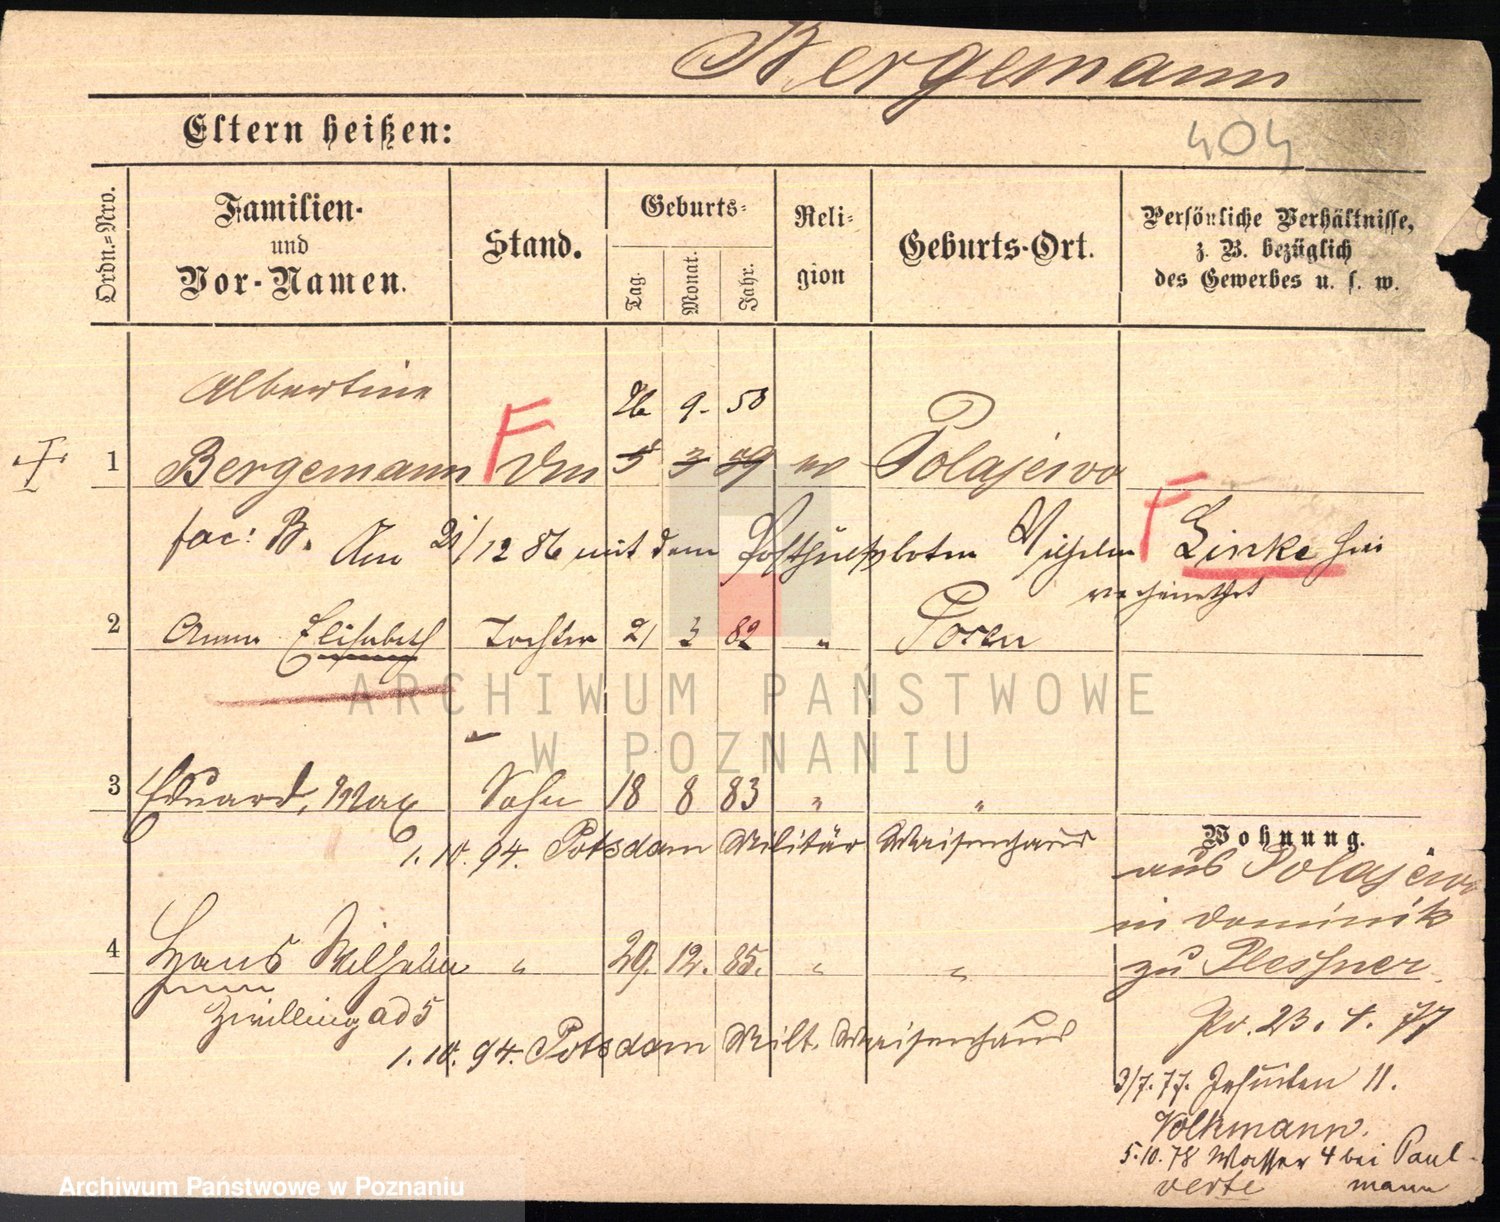 Bergemann
Eltern heißen:
404
Ordn.-Nro.
Familien- und Vor-Namen.
Stand.
Geburts-
Tag. Monat. Jahr.
Reli-gion
Geburts-Ort.
Persönliche Verhältnisse, z. B. bezüglich des Gewerbes u. s. w.
Albertine 26 9. 58
1 Bergemann F 5 3 59 ev Polajewo
F
fac: B. Am 21/12 86 mit dem Posthülfsboten Wilhelm Linke hier
verheirathet
2 Anna Elisabeth Tochter 21 3 82 " Posen
3 Eduard, Max Sohn 18 8 83 " "
1. 10. 94. Potsdam Militär Waisenhaus
4 Hans Wilhelm " 29. 12. 85. " "
Zwilling ad 5
1. 10. 94. Potsdam Milt. Waisenhaus
Wohnung.
aus Polajewo
in Dominik
zu Plessner
23. 4. 77
3/7. 77. Jesuiten 11.
Volkmann.
5.10.78 Wasser 4 bei Paul-
verte mann
ARCHIWUM PAŃSTWOWE
W POZNANIU
Archiwum Państwowe w Poznaniu